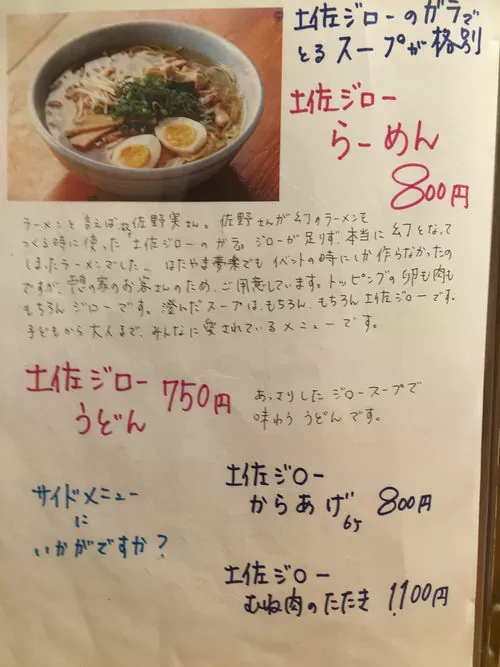 土佐ジローのガラで
とるスープが格別
土佐ジロー
らーめん
800円
ラーメンと言えば故佐野実さん。佐野さんが幻のラーメンを
つくる時に使った土佐ジローのガラ。ジローが足りず、本当に幻となって
しまったラーメンでした。はたやま夢楽でもイベントの時にしか作らなかったの
ですが、憩の家のお客さんのため、ご用意しています。トッピングの卵も肉も
もちろんジローです。澄んだスープは、もちろん、もちろん土佐ジローです。
子どもから大人まで、みんなに愛されているメニューです。
土佐ジロー
うどん
750円
あっさりしたジロースープで
味わううどんです。
サイドメニュー
に
いかがですか?
土佐ジロー
からあげ 6ケ 800円
土佐ジロー
むね肉のたたき 1,100円